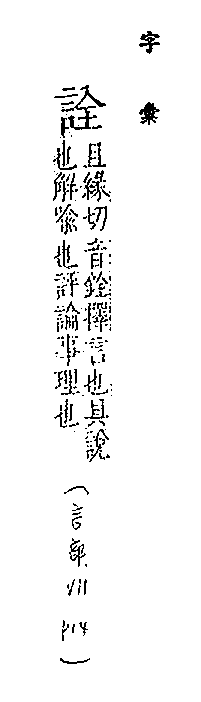 字彙
詮
且緣切音銓擇言也具說
也解喩也評論事理也
(言部, VII
p14)